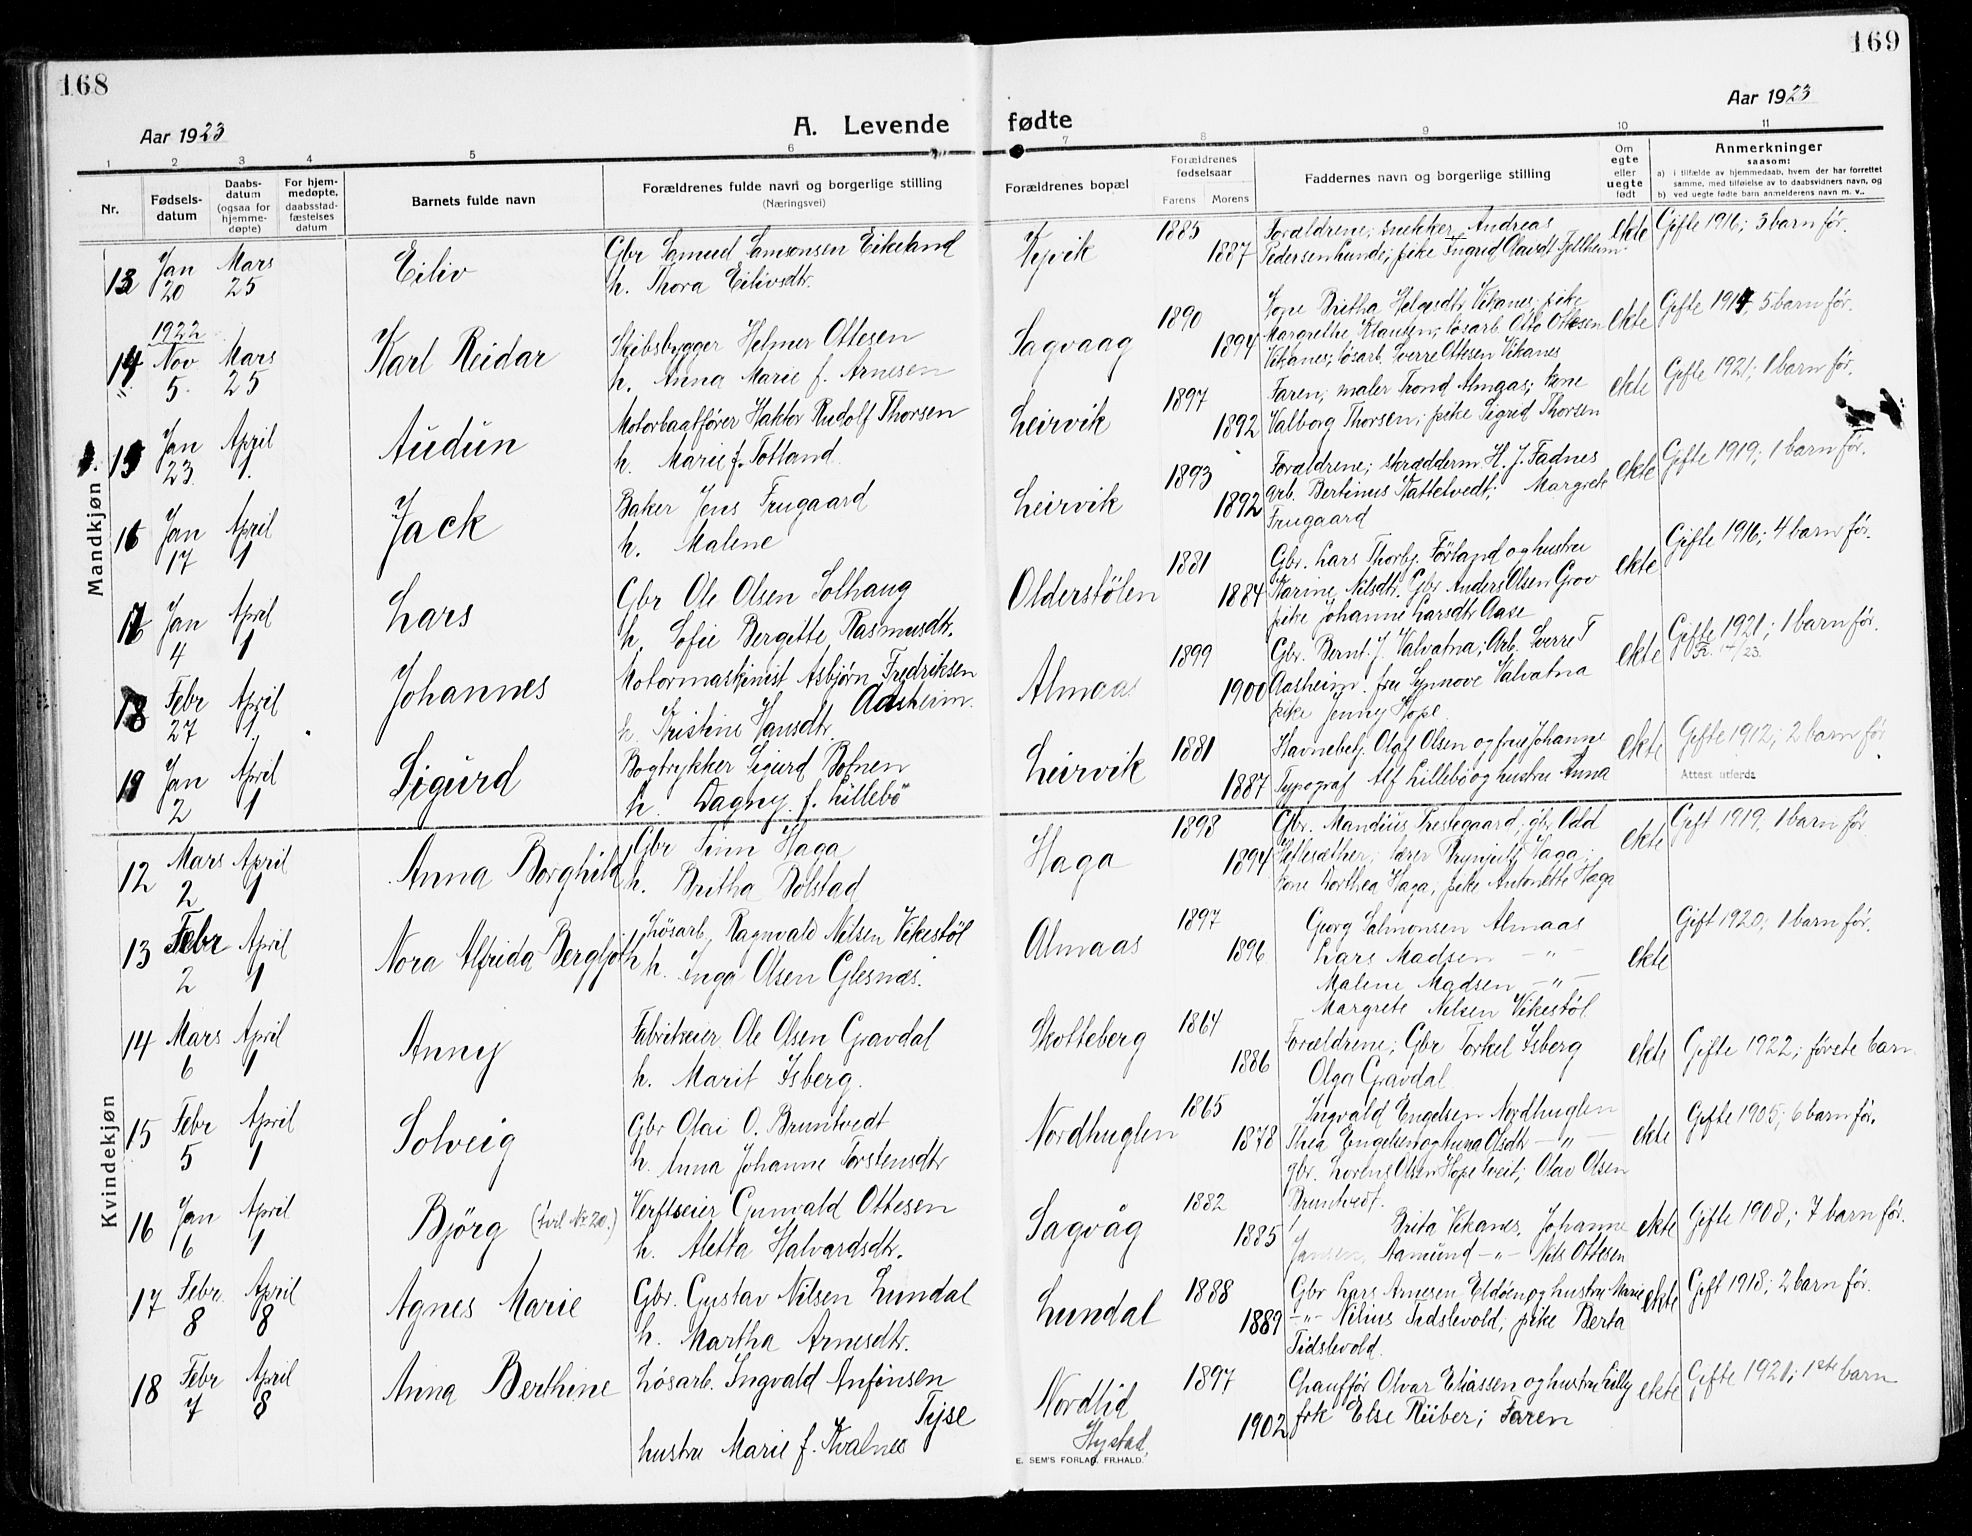 168
169
Aar 1923
A. Levende fødte
Aar 1923
1 2 3 4 5 6 7 8 9 10 11
Nr.
Fødsels-
datum
Daabs-
datum
(ogsaa for
hjemme-
døpte)
For hjem-
medøpte,
daabsstad-
fæstelses
datum
Barnets fulde navn
Forældrenes fulde navn og borgerlige stilling
(Næringsvei)
Forældrenes bopæl
Forældrenes
fødselsaar
Farens Morens
Faddernes navn og borgerlige stilling
Om
egte
eller
uegte
født
Anmerkninger
saasom:
a) i tilfælde av hjemmedaab, hvem der har forrettet
samme, med tilføielse av to daabsvidners navn, og
b) ved uegte fødte barn anmelderens navn m. v..
Mandkjøn
13 Jan 20 Mars 25 Eiliv
Gbr Samuel Samsonsen Eikeland
h. Thora Eilivsdtr.
1885 1887
Forældrene; snekker Andreas
Pedersen Lunde; pike Ingrid Olavsdt Fjellheim
ekte Gifte 1916; 3 barn før.
14 1922 Nov 5. Mars 25 Karl Reidar
Skibsbygger Helmer Ottesen
h. Anna Marie f. Arnesen
Sagvaag 1890 1894
Kone Britha Helgesdtr Vikanes; pike
Margrethe Klausen; løsarb. Otto Ottesen
Vikanes; løsarb. Sverre Ottesen Vikanes
ekte Gifte 1914, 5 barn før.
15 Jan 23. April 1. Audun
Motorbaatfører Haktor Rudolf Thorsen
h. Marie f. Totland.
Leirvik 1897 1892
Faren; maler Trond Almaas; kone
Valborg Thorsen; pike Sigrid Thorsen
ekte Gifte 1921; 1 barn før.
16 Jan 17 April 1 Jack
Baker Jens Frugaard
h. Malene
Leirvik 1893 1892
Forældrene; skrædderm. H. J. Fadnes
arb. Bertinius Kattelvedt; Margrete
Frugaard
ekte Gifte 1919; 1 barn før.
17 Jan 4 April 1 Lars
Gbr Ole Olsen Solhaug
h. Sofie Bergitte Rasmusdtr.
Olderstølen 1881 1884
Gbr. Lars Thorbj. Førland og hustru
Karine Nilsdtr. Gbr Anders Olsen Grov
pike Johanne Larsdtr Aase
ekte Gifte 1916; 4 barn før.
18 Febr 27 April 1. Johannes
Motormaskinist Asbjørn Fredriksen
Aasheim.
h. Kristine Hansdtr.
Almaas 1899 1900
Gbr. Bernt J. Valvatna; Arb. Sverre T
Aasheim. fru Synnøve Valvatna
pike Jenny Hope
ekte Gifte 1921; 1 barn før.
19 Jan 2 April 1 Sigurd
Bogtrykker Sigurd Botnen
h. Dagny f. Lillebø
Leirvik 1881 1887
Havnebetj. Olaf Olsen og frue Johanne
Typograf Alf Lillebø og hustru Anna
ekte Gifte 1912; 2 barn før
Attest utferda
Kvindekjøn
12 Mars 2 April 1 Anna Borghild
Gbr Finn Haga
h. Britha Bolstad
Haga 1898 1894
Gbr. Mandius Prestegaard; gbr. Odd
Heflesæther; lærer Brynjulf Haga;
kone Dorthea Haga, pike Antonette Haga
ekte Gift 1919, 1 barn før
13 Febr 2 April 1 Nora Alfrida Bergljoth
Løsarb. Ragnvald Nilsen Vikestøl
h. Inga Olsen Glesnæs.
Almaas 1897 1896
Georg Salmonsen Almaas
Lars Madsen — " —
Malene Madsen — " —
Margrete Nilsen Vikestøl
ekte Gift 1920; 1 barn før.
14 Mars 6 April 1 Anny
Fabrikeier Ole Olsen Gravdal
h. Marit Isberg.
Skotteberg 1864 1886
Forældrene; Gbr Torkel Isberg
Olga Gravdal
ekte Gifte 1922; første barn
15 Febr 5 April 1 Solveig
Gbr Olai O. Bruntvedt
h. Anna Johanne Torstensdtr
Nordhuglen 1865 1878
Ingvald Engelsen Nordhuglen
Thea Engelsen og Anna Olsdtr — " —
gbr. Lorens Olsen Hopetveit; Olav Olsen
Bruntvedt.
ekte Gifte 1905; 6 barn før.
16 Jan 6 April 1 Bjørg (tvil Nr. 20.)
Verftseier Gunvald Ottesen
h. Aletta Halvardsdtr.
Sagvåg 1882 1885
Brita Vikanes. Johanne
Jansen, Aamund — " — Nils Ottesen
ekte Gifte 1908; 7 barn før.
17 Febr. 8 April 8 Agnes Marie
Gbr. Gustav Nilsen Lundal
h. Martha Arnesdtr.
Lundal 1888 1889
Gbr Lars Arnesen Eldøen og hustru Marie
— " — Nilius Tidslevold, pike Berta
Tidslevold.
ekte Gift 1918; 2 barn før.
18 Febr 7 April 8 Anna Berthine
Løsarb. Ingvald Anfinsen
Tyse
hustru Marie f. Kvalnes
Nordlid
Hystad,
1897 1902
Chauffør Olvar Eliassen og hustru Lilly
frk Else Riiber; Faren
ekte Gifte 1921; 1ste barn
E. SEM'S FORLAG. FR.HALD.